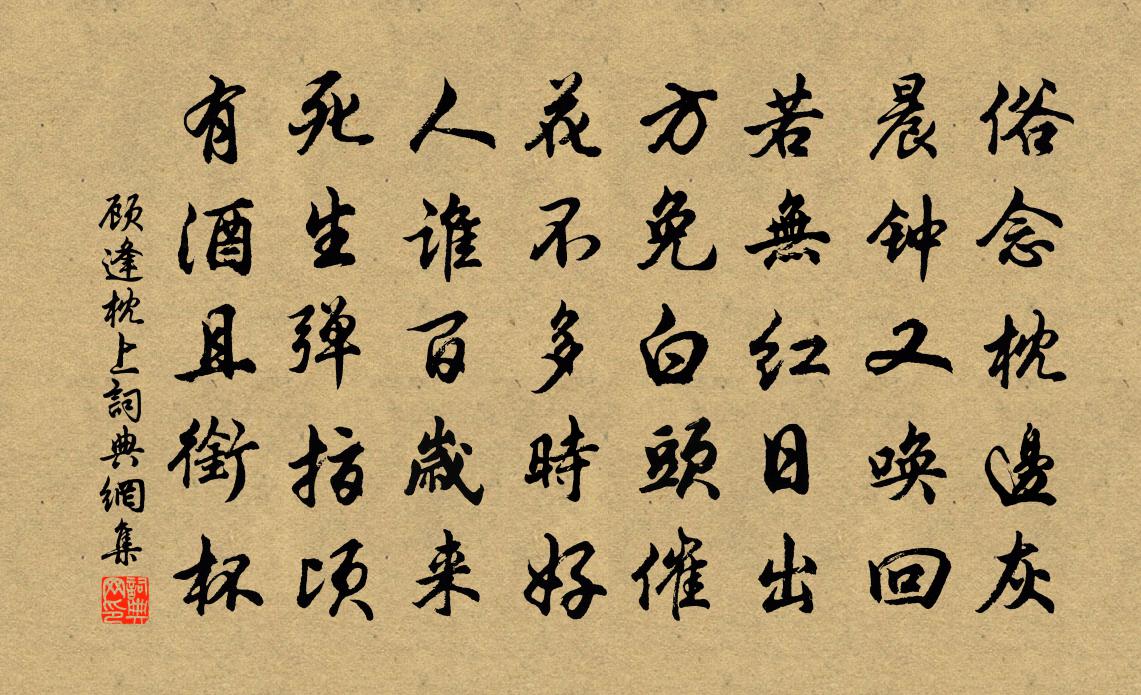 俗念枕邊灰
晨钟又唤回
若無红日出
方免白頭催
花不多時好
人谁百歲来
死生弹指顷
有酒且銜杯
顾逢枕上詞典網集
詞典網印